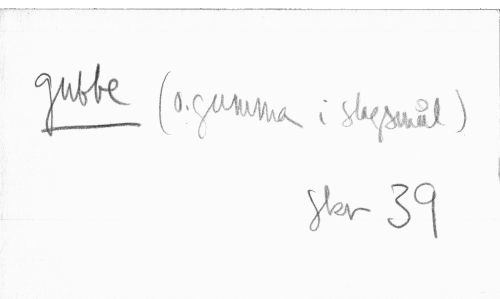 gubbe (o. gumma i slagsmål)
skr 39